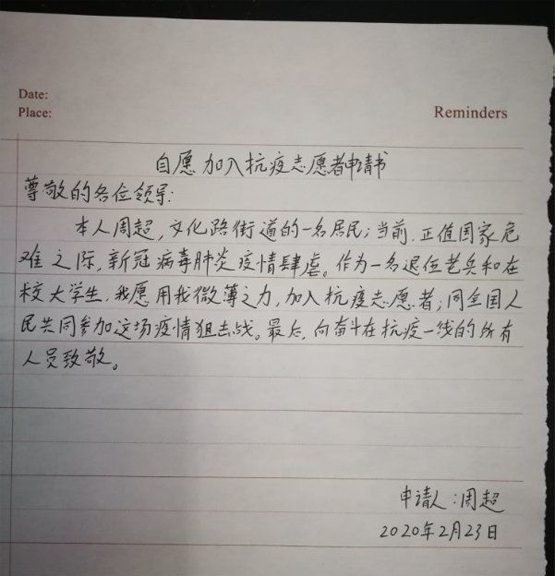 Date:
Place:
Reminders
自愿加入抗疫志愿者申请书
尊敬的各位领导:
本人周超,文化路街道的一名居民;当前,正值国家危
难之际,新冠病毒肺炎疫情肆虐。作为一名退伍老兵和在
校大学生,我愿用我微薄之力,加入抗疫志愿者;同全国人
民共同参加这场疫情狙击战。最后,向奋斗在抗疫一线的所有
人员致敬。
申请人:周超
2020年2月23日